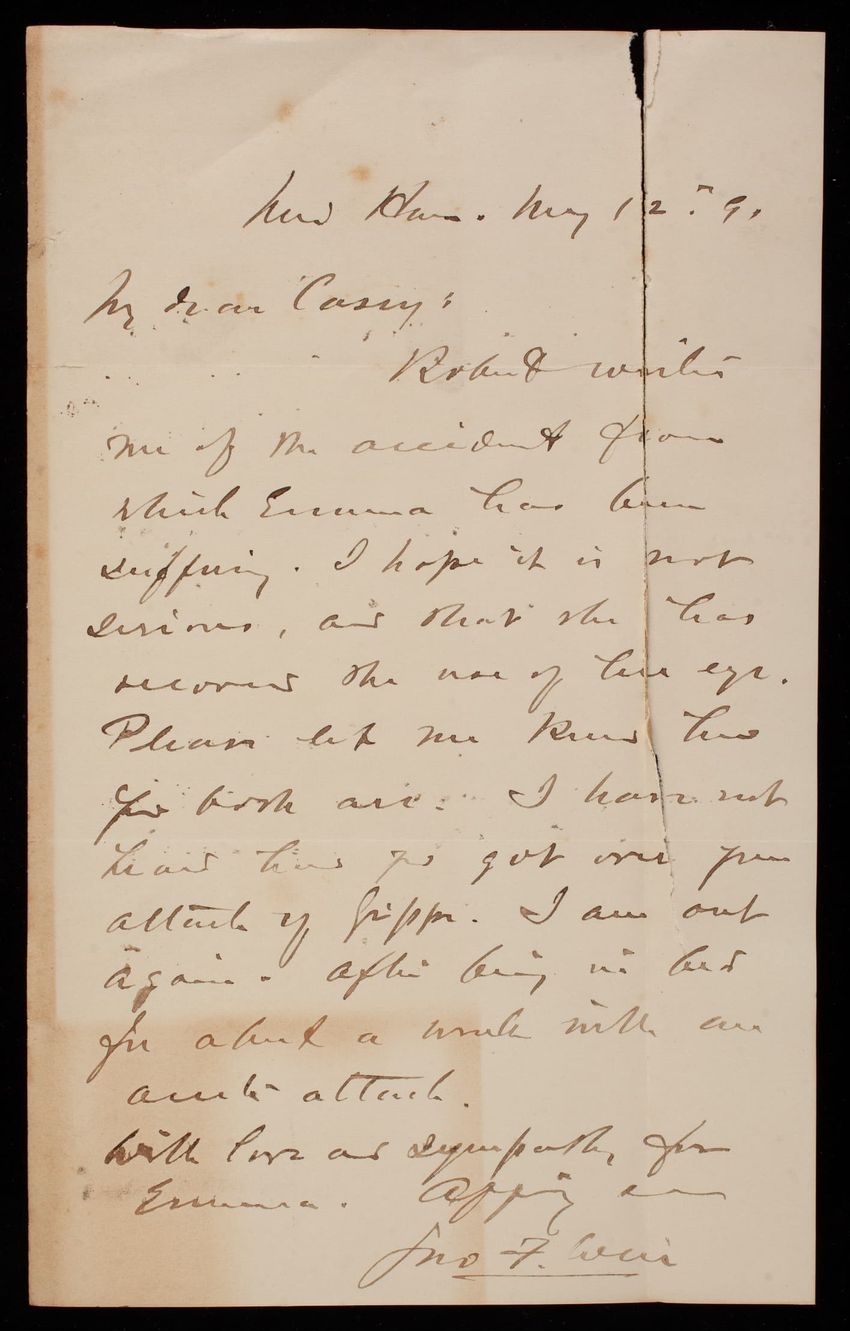 New Haven. May 12th 91
My dear Casey:
Robert writes
me of the accident from
which Emma has been
suffering. I hope it is not
serious, and that she has
recovered the use of her eye.
Please let me know how
you both are. I have not
heard how you got over your
attack of Grippe. I am out
again. After being in bed
for about a week with an
acute attack.
With love and sympathy for
Emma. Affy
Jno F. Weir